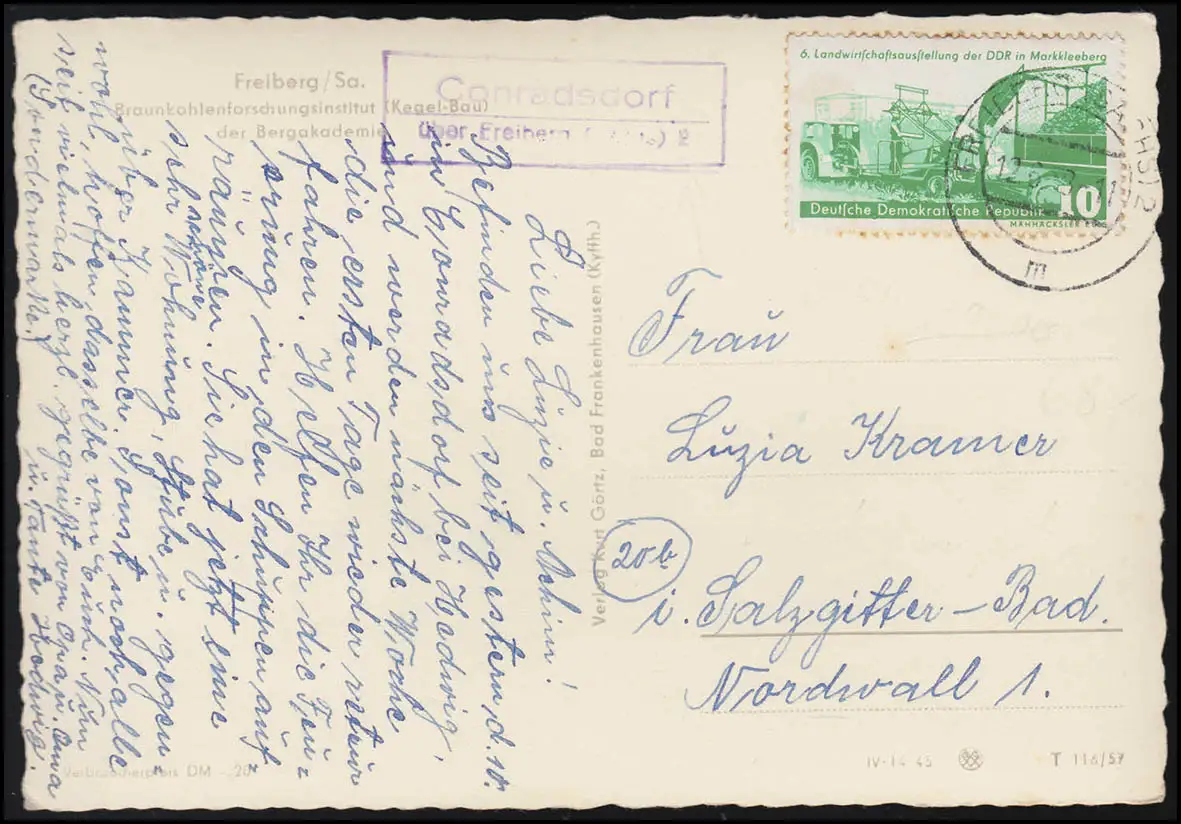 Freiberg/Sa.
Braunkohlenforschungsinstitut (Kegel-Bau)
der Bergakademie
Conradsdorf
über Freiberg
6. Landwirtschaftsausstellung der DDR in Markkleeberg
10
Deutsche Demokratische Republik
MÄHHÄCKSLER
Liebe Luzie u.
Befinden uns seit gestern, d. 10.
in Conradsdorf bei Hedwig,
und werden nächste Woche
die ersten Tage wieder retur
fahren. Helfen Ihr die Feu=
erung in den Schuppen auf
räumen. Sie hat jetzt eine
sehr schöne Wohnung, Stube u. gegen=
über Kammer. Sonst noch alle
wohl, hoffen dasselbe von Euch. Nun
seit vielmals herzl. gegrüßt von Opau. Oma
u. Tante Hedwig.
(Sondermarke!)
Verlag Kurt Görtz, Bad Frankenhausen (Kyffh.)
Frau
Luzia Kramer
20b
i. Salzgitter-Bad.
Nordwall 1.
Verbraucherpreis DM -,20
IV-14-45
T 116/57